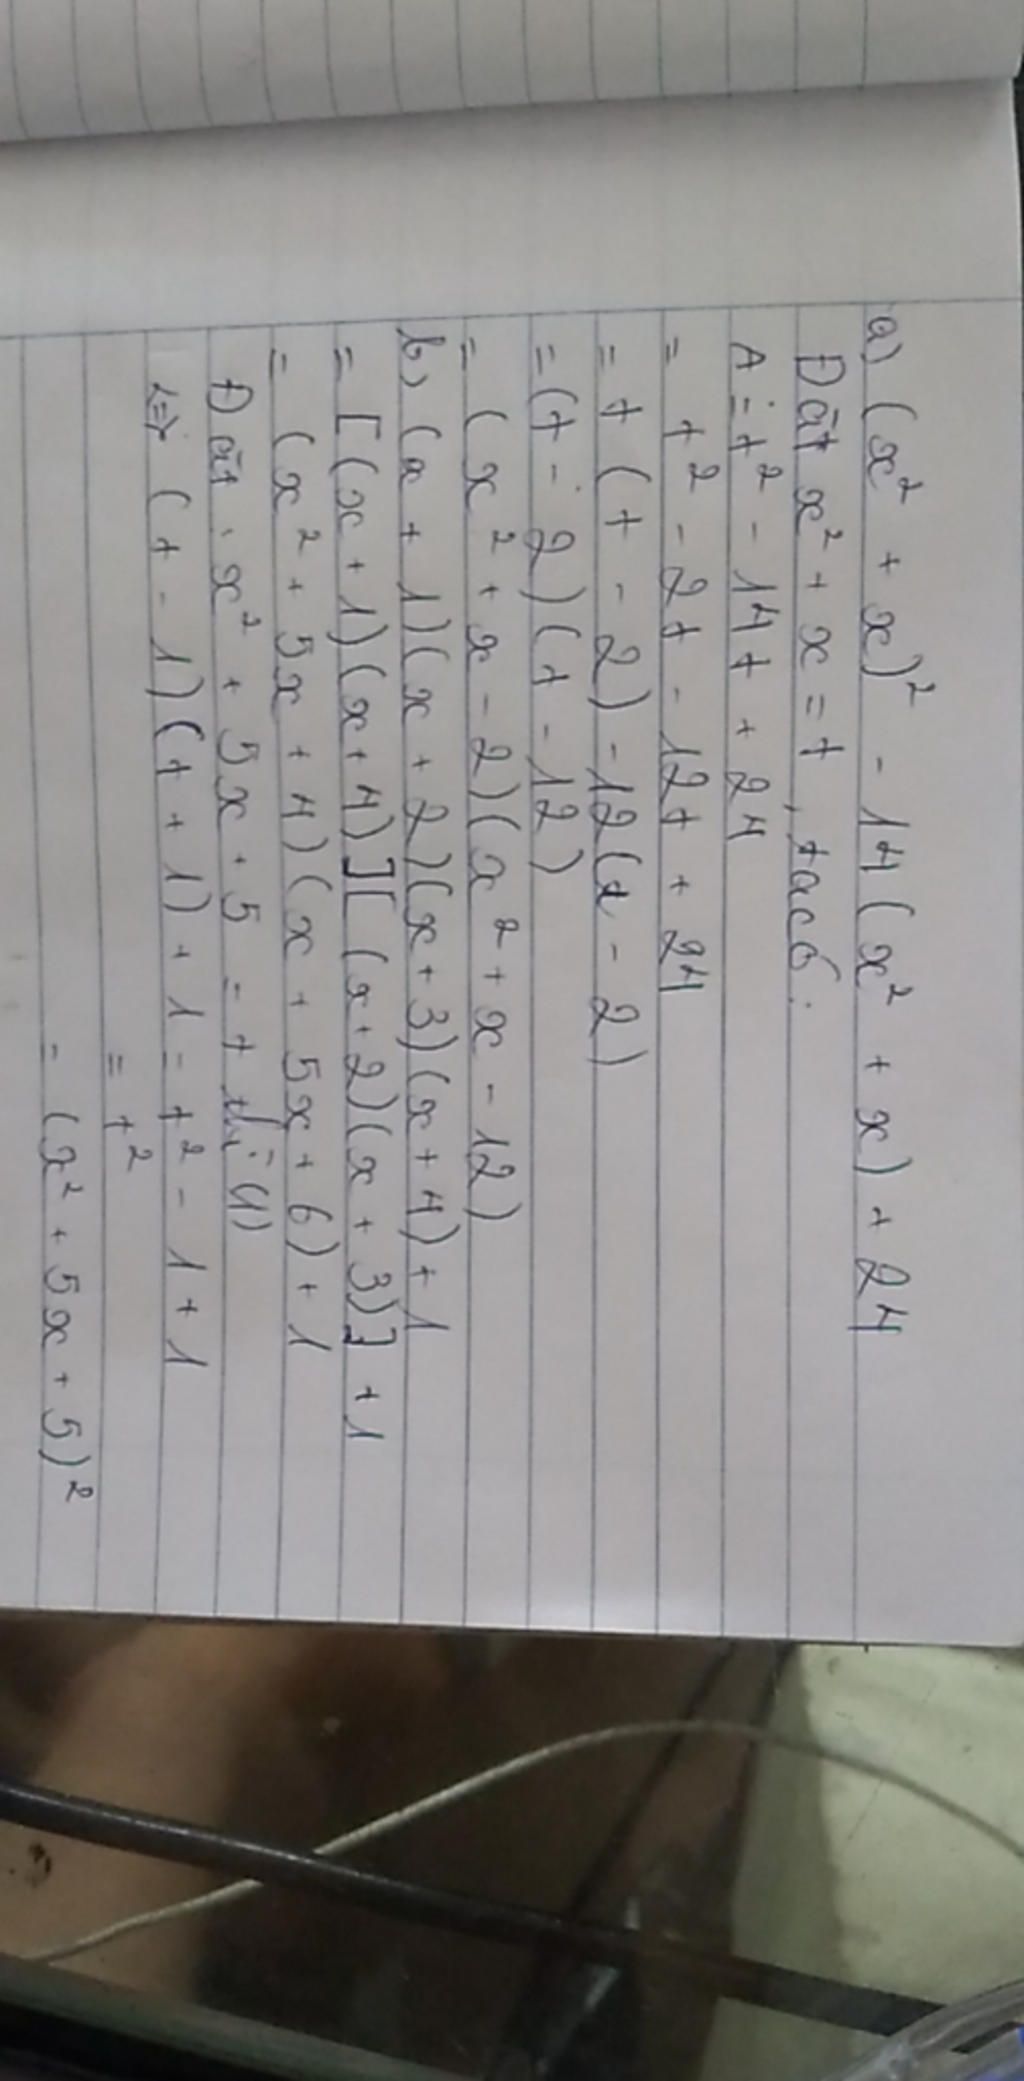 a) (x² + x)² - 14(x² + x) + 24
Đặt x² + x = t, ta có:
A = t² - 14t + 24
= t² - 2t - 12t + 24
= t(t - 2) - 12(t - 2)
= (t - 2)(t - 12)
= (x² + x - 2)(x² + x - 12)
b) (x + 1)(x + 2)(x + 3)(x + 4) + 1
= [(x + 1)(x + 4)][(x + 2)(x + 3)] + 1
= (x² + 5x + 4)(x + 5x + 6) + 1
Đặt x² + 5x + 5 = t thì
<=> (t - 1)(t + 1) + 1 = t² - 1 + 1
= t²
= (x² + 5x + 5)²